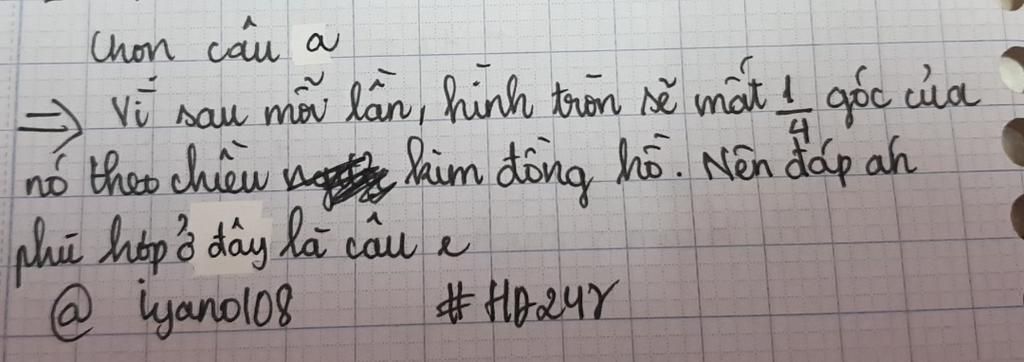 Chọn câu a
=> Vì sau mỗi lần, hình tròn sẽ mất 1/4 góc của
nó theo chiều kim đồng hồ. Nên đáp án
phù hợp ở đây là câu e
@ iyano108 #HĐ247